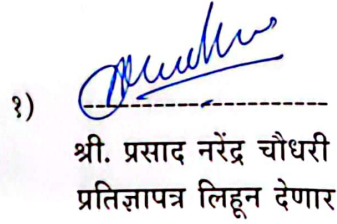 १) --------------------
श्री. प्रसाद नरेंद्र चौधरी
प्रतिज्ञापत्र लिहून देणार